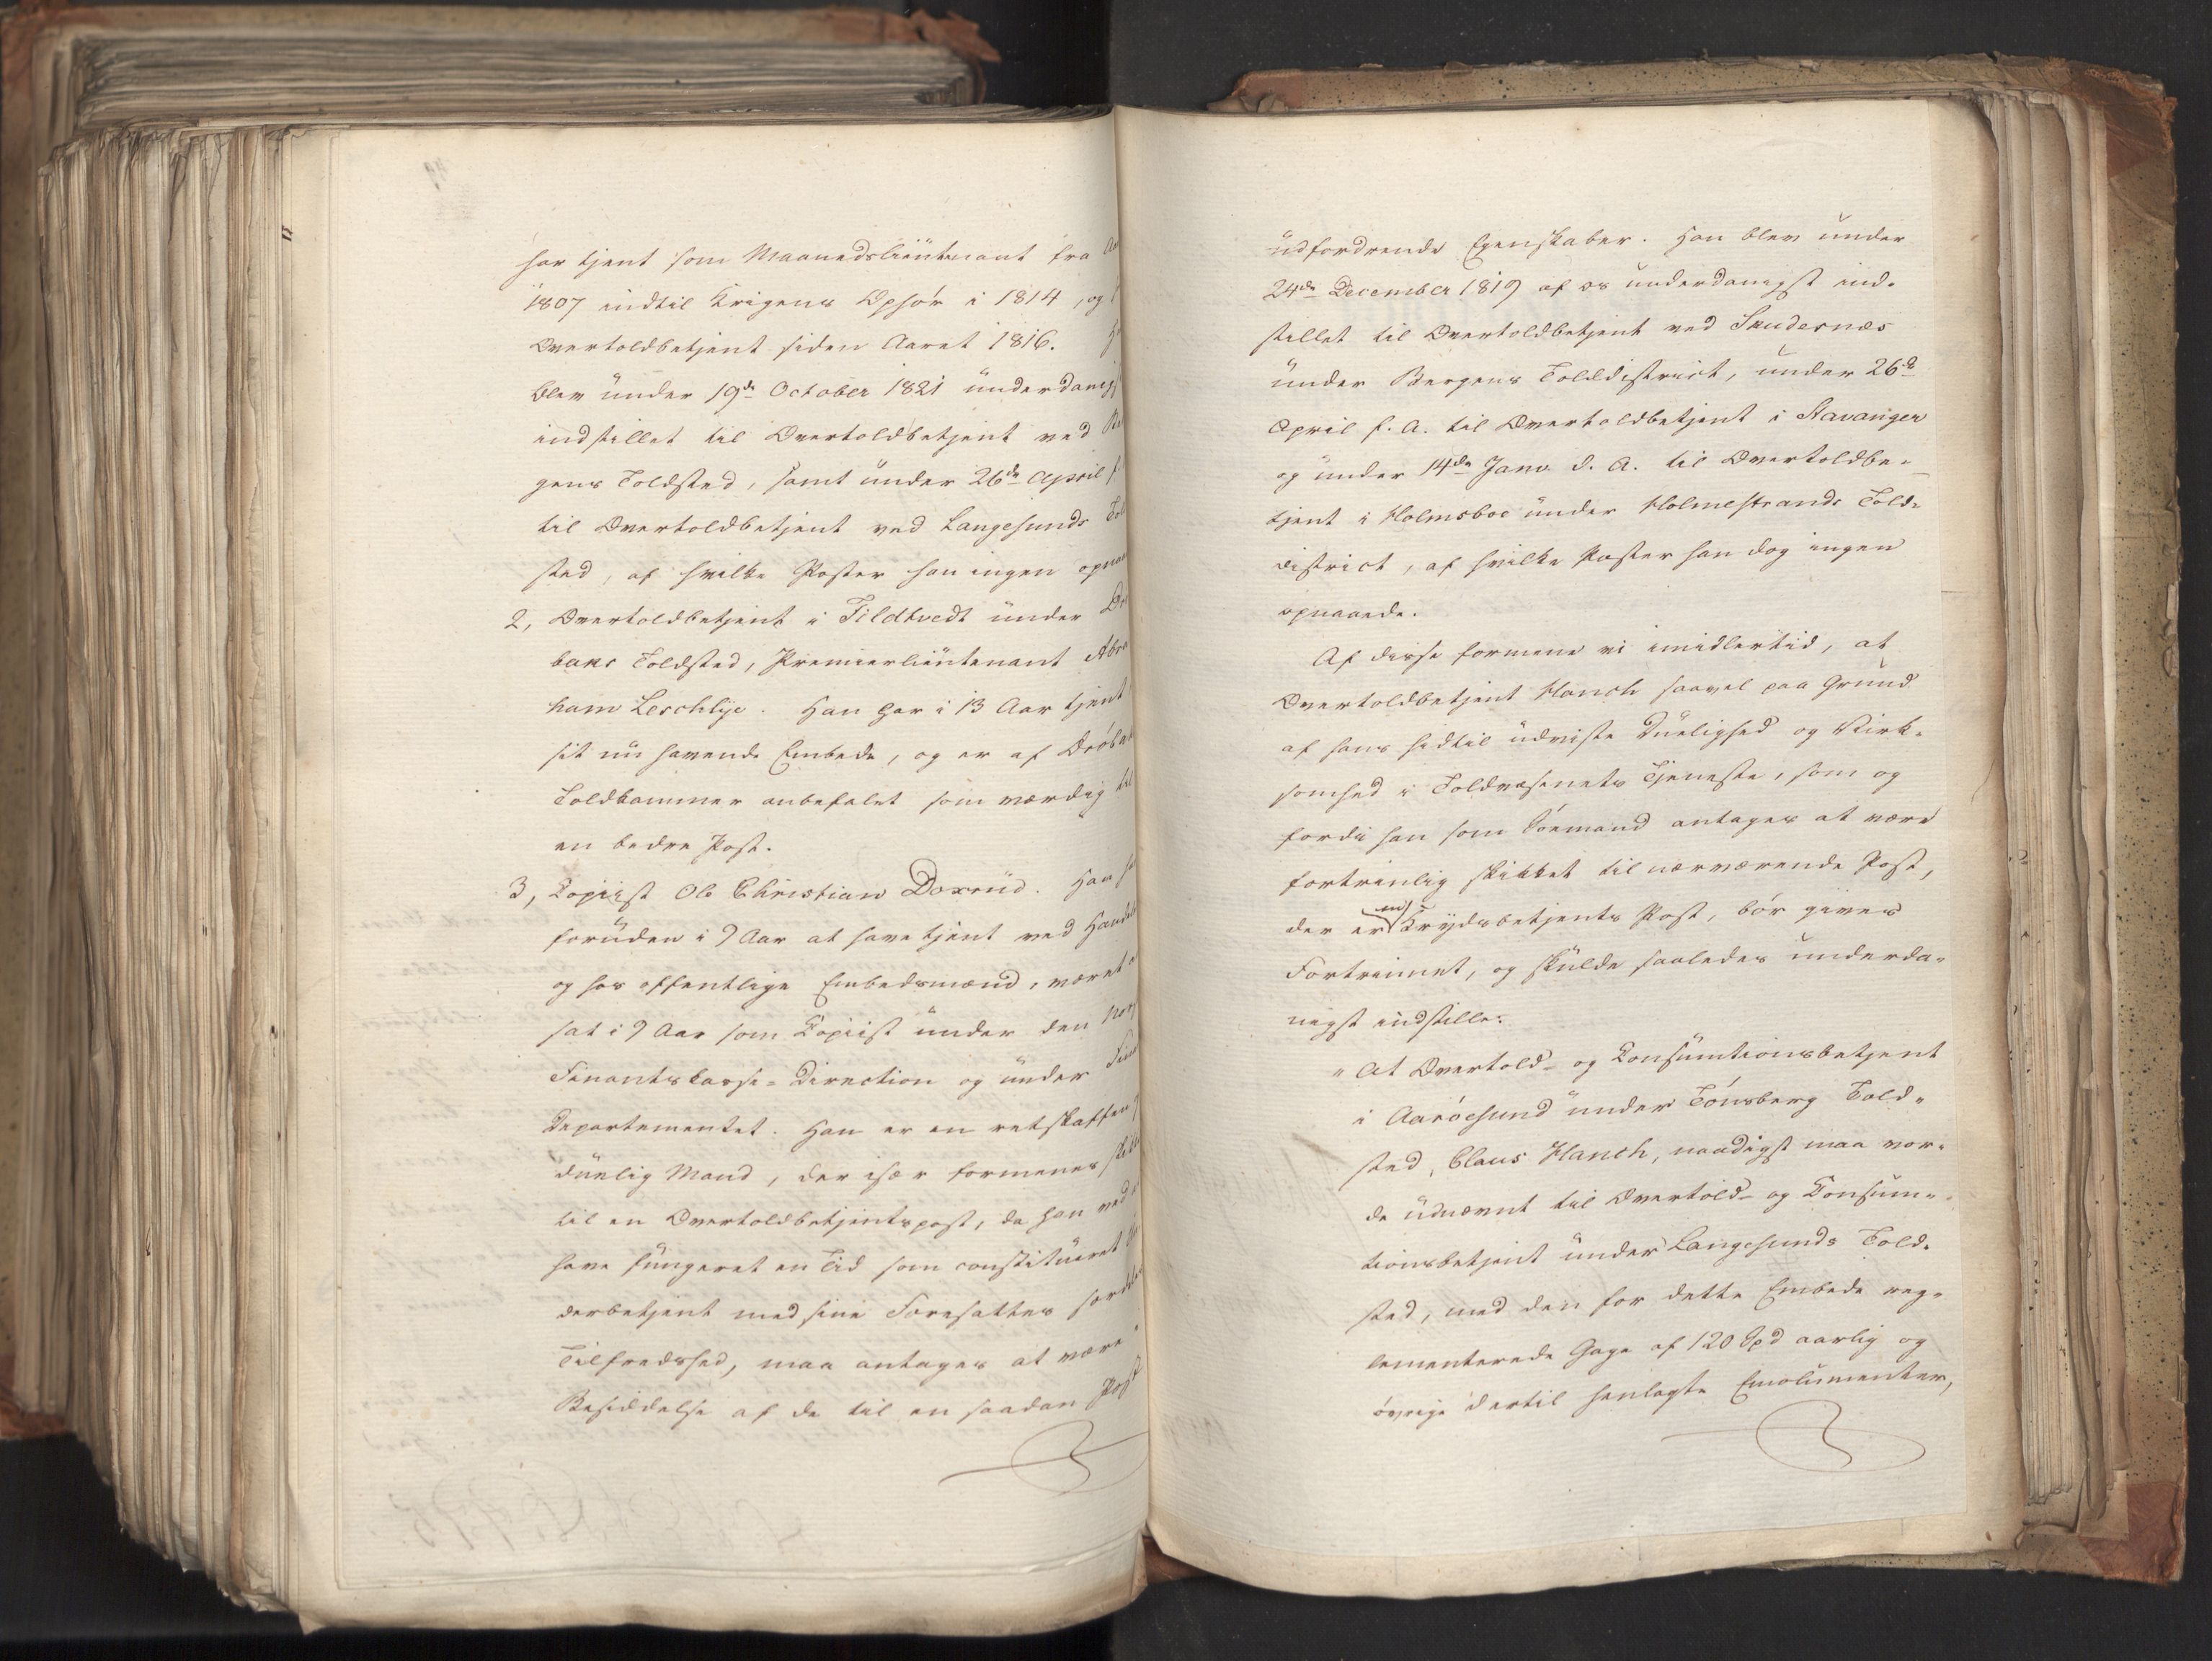 har tjent som Maanedslieutenant fra
1807 indtil Krigens Ophör i 1814, og
Overtoldbetjent siden Aaret 1816.
blev under 19de October 1821 underdanigst
indstillet til Overtoldbetjent ved Ber
gens Toldsted, samt under 26de April f.
til Overtoldbetjent ved Langesunds Told
sted, af hvilke Poster han ingen opnaa
2, Overtoldbetjent i Fildtvedt under Drö
baks Toldsted, Premierlieutenant Abra
ham Leschlye. Han har i 13 Aar tjent
sit nu havende Embede, og er af Dröbak
Toldkammer anbefalet som værdig til
en bedre Post.
3, Copiist Ole Christian Doxrud. Han ha
foruden i 9 Aar at have tjent ved Handel
og hos offentlige Embedsmænd, været an
sat i 9 Aar som Copiist under den Nor
Finantscasse-Direction og under Finan
Departementet. Han er en retskaffen
duelig Mand, der især formenes skik
til en Overtoldbetjentspost, da han ved
have fungeret en Tid som constitueret
derbetjent med sine Foresattes særdeles
Tilfredshed, maa antages at være i
Besiddelse af de til en saadan Post
udfordrende Egenskaber. Han blev under
24de December 1819 af os underdanigst ind-
stillet til Overtoldbetjent ved Skudesnæs
under Bergens Tolddistrict, under 26de
April f. A. til Overtoldbetjent i Stavanger
og under 14de Janv d. A. til Overtoldbe-
tjent i Holmsboe under Holmestrands Told-
district, af hvilke Poster han dog ingen
opnaaede.
Af disse formene vi imidlertid, at
Overtoldbetjent Hanch saavel paa Grund
af hans hidtil udviste Duelighed og Virk-
somhed i Toldvæsenets Tjeneste, som og
fordi han som Söemand antages at være
fortrinlig skikket til nærværende Post,
der er en Krydsbetjents Post, bör gives
Fortrinnet, og skulde saaledes underda-
nigst indstille:
"At Overtold- og Consumtionsbetjent
i Aaröesund under Tönsberg Told-
sted, Claus Hanch, naadigst maa vor-
de udnævnt til Overtold- og Consum-
tionsbetjent under Langesunds Told-
sted, med den for dette Embede reg-
lementerede Gage af 120 Spd aarlig og
övrige dertil henlagte Emolumenter,